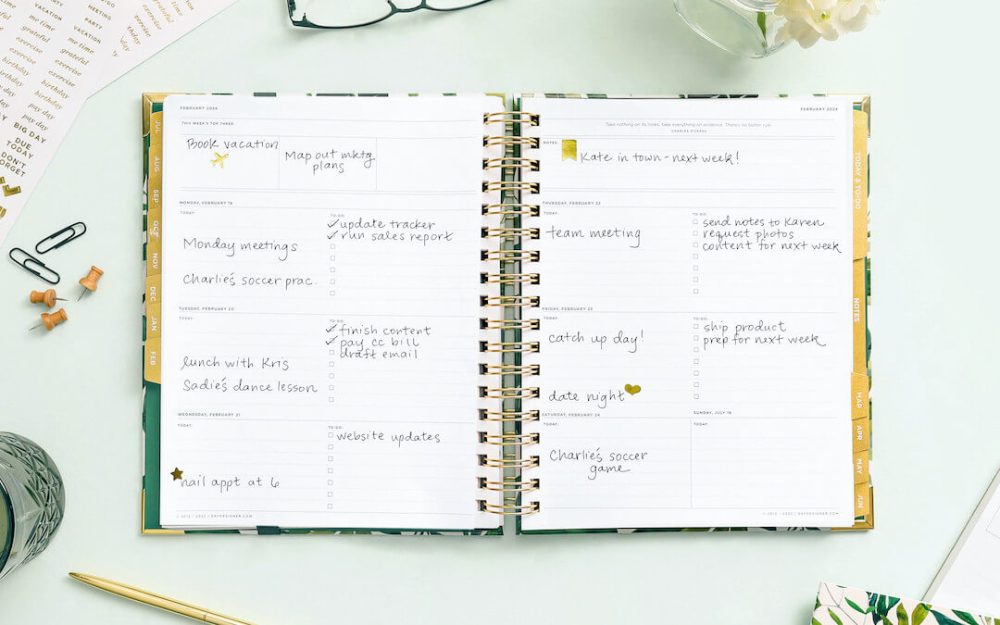 me time
MEETING
PARTY
VACATION
me time
grateful
exercise
birthday
pay day
BIG DAY
DUE TODAY
DON'T FORGET
JUL
AUG
SEP
OCT
NOV
DEC
JAN
FEB
FEBRUARY 2024
THIS WEEK'S TOP THREE
Book vacation
Map out mktg
plans
MONDAY, FEBRUARY 19
TODAY:
TO DO:
Monday meetings
Charlie's soccer prac.
update tracker
run sales report
TUESDAY, FEBRUARY 20
TODAY:
TO DO:
lunch with Kris
Sadie's dance lesson
finish content
pay cc bill
draft email
WEDNESDAY, FEBRUARY 21
TODAY:
TO DO:
nail appt at 6
website updates
FEBRUARY 2024
CHARLES DICKENS
NOTES:
Kate in town - next week!
THURSDAY, FEBRUARY 22
TODAY:
TO DO:
team meeting
send notes to Karen
request photos
content for next week
FRIDAY, FEBRUARY 23
TODAY:
TO DO:
catch up day!
date night
ship product
prep for next week
SATURDAY, FEBRUARY 24
TODAY:
Charlie's soccer
game
TODAY:
TODAY & TO-DO
NOTES
MAR
APR
MAY
JUN